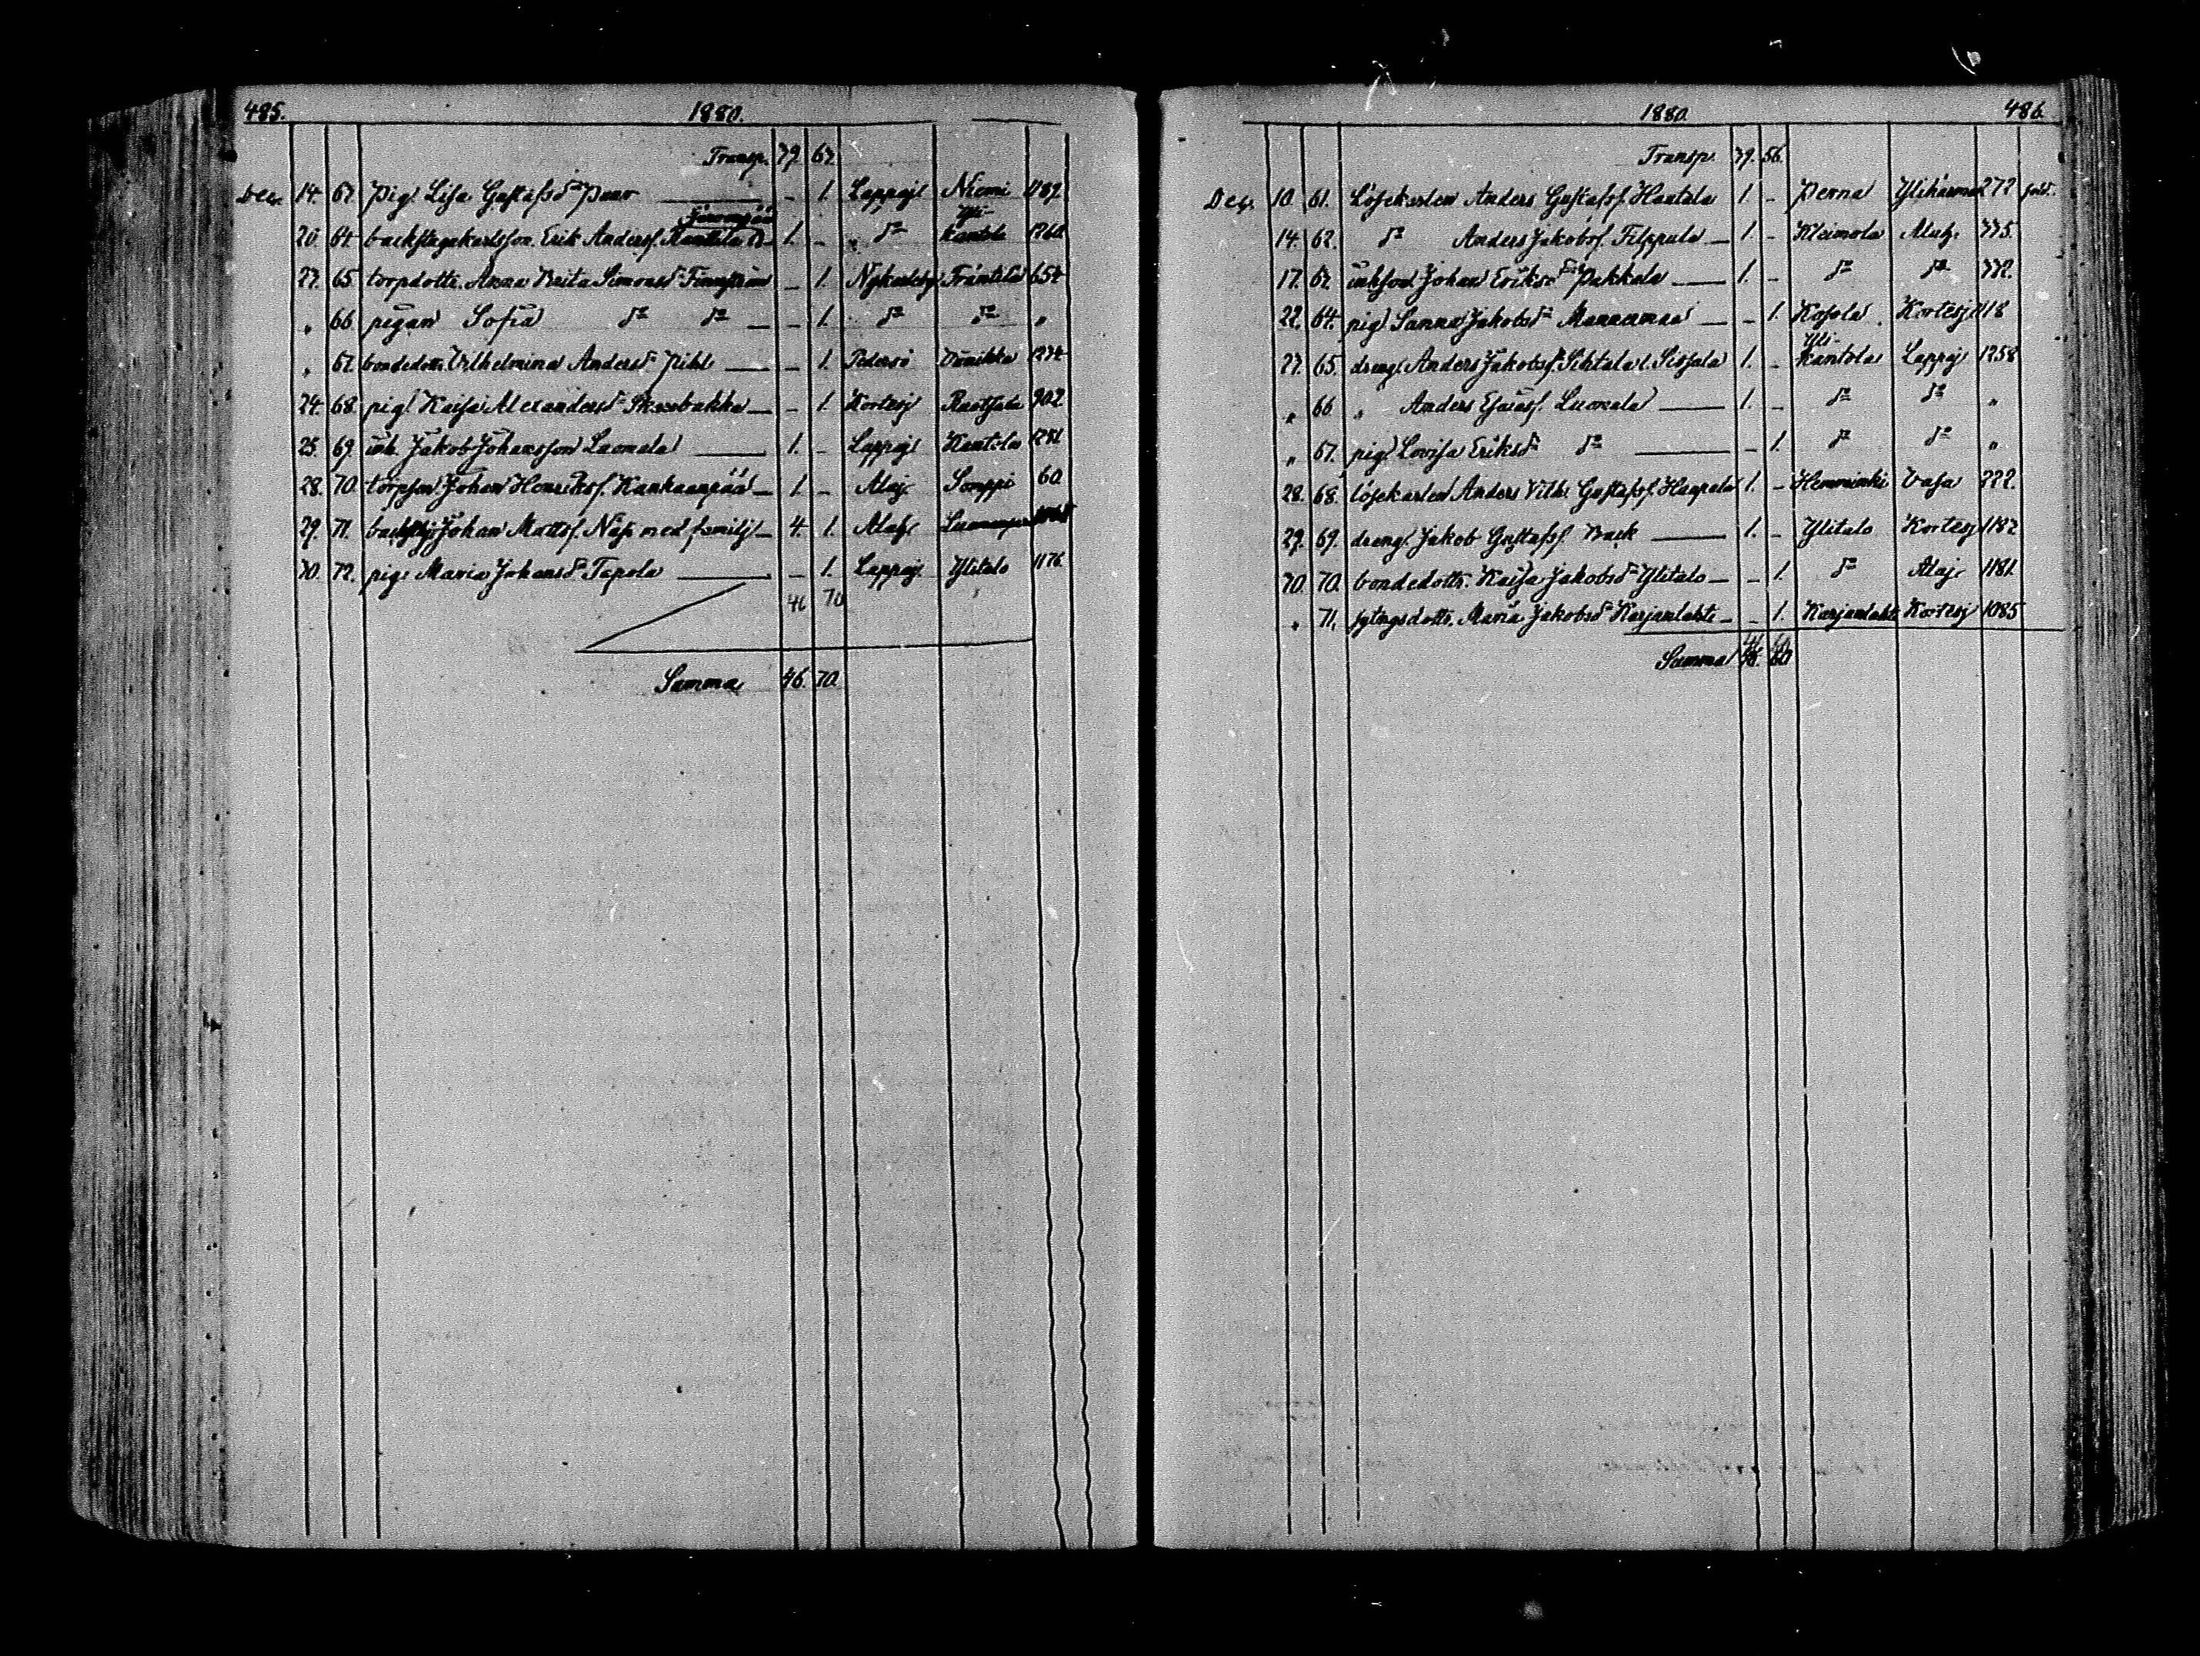 485. 1880.
Transp. 39. 63.
Dec. 14. 63. pig. Lisa Gustafsdr Puro — – 1. Lappaj. Niemi 1189.
20. 64. backstugukarlsson Erik Andersf. 1. – dº Yli-Kantola 1260.
23. 65. torpdottr. Anna Brita Simonsdr Finnström – 1. Nykarleby Franttila 654
„ 66 pigan Sofia dº dº — – 1. dº dº „
„ 67. bondedottr. Wilhelmina Andersdr Pihl — – 1. Pedersö 1234
24. 68. pig. Kaisa Alexandersdr — – 1. Kortesj. 902.
25. 69. inh. Jakob Johansson Luomala — 1. – Lappaj. Kantola 1281.
28. 70. torpson Johan Henriksf. Kankaanpää — 1. – Alaj. Somppi 60.
29. 71. Johan Mattsf. Näsi med familj — 4. 1. Alah.
30. 72. pig. Maria Johansdr Tapola — – 1. Lappaj. Ylitalo 1176.
46 70
Samma 46. 70.
1880. 486.
Transp. 39. 56.
Dec. 10. 61. Lösekarlen Anders Gustafsf. Hantala 1. – Perna Ylihärmä 272
14. 62. dº Anders Jakobsf. Filppula — 1. – Kleimola Alah. 335.
17. 63. inhson Johan Eriksf. Pukkala — 1. – dº dº 332.
22. 64. pig. Sanna Jakobsdr Mannermaa — – 1. Kosola Kortesj. 118
23. 65. dreng. Anders Jakobsf. 1. – Yli-Kantola Lappaj. 1258
„ 66 „ Anders Esaiasf. Luomala — 1. – dº dº „
„ 67. pig. Lovisa Eriksdr dº — – 1. dº dº „
28. 68. lösekarlen Anders Vilh. Gustafsf. Haapala 1. – Hemminki Vasa 222.
29. 69. dreng. Jakob Gustafsf. Back — 1. – Ylitalo Kortesj. 1182
30. 70. bondedottr. Kaisa Jakobsdr Ylitalo — – 1. dº Alaj. 1181.
„ 71. sytngsdottr. Maria Jakobsdr Karjanlahti — – 1. Karjanlahti Kortesj. 1085
Samma 46. 60